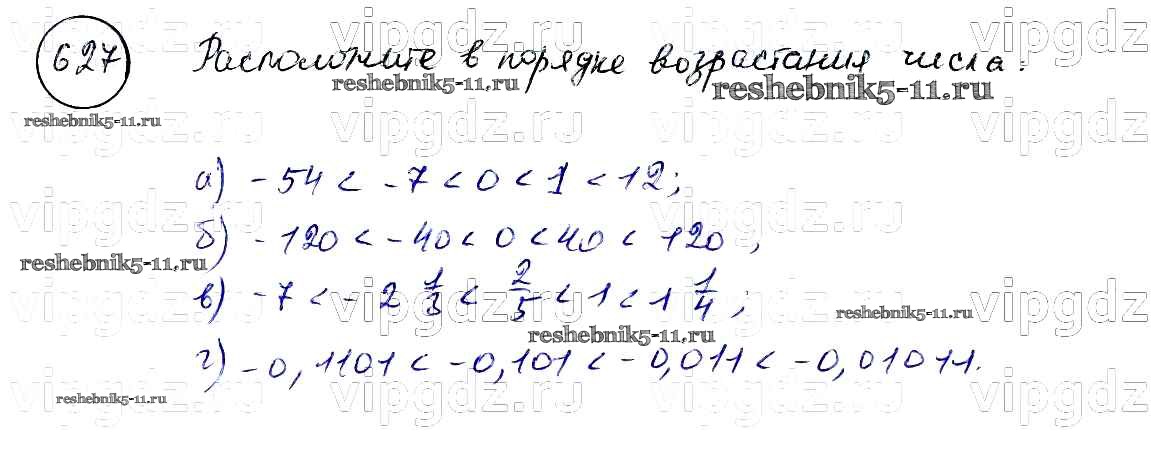 627 Расположите в порядке возрастания числа:
reshebnik5-11.ru reshebnik5-11.ru
reshebnik5-11.ru
vipgdz.ru vipgdz.ru vipgdz.ru vipgdz
а) -54 < -7 < 0 < 1 < 12;
vipgdz.ru vipgdz.ru vipgdz.ru vipgdz
б) -120 < -40 < 0 < 40 < 120;
reshebnik5-11.ru
в) -7 < -2 1/3 < 2/5 < 1 < 1 1/4;
vipgdz.ru vipgdz.ru vipgdz.ru vipgdz
reshebnik5-11.ru reshebnik5-11.ru
г) -0,1101 < -0,101 < -0,011 < -0,01011.
reshebnik5-11.ru
vipgdz.ru vipgdz.ru vipgdz.ru vipgdz